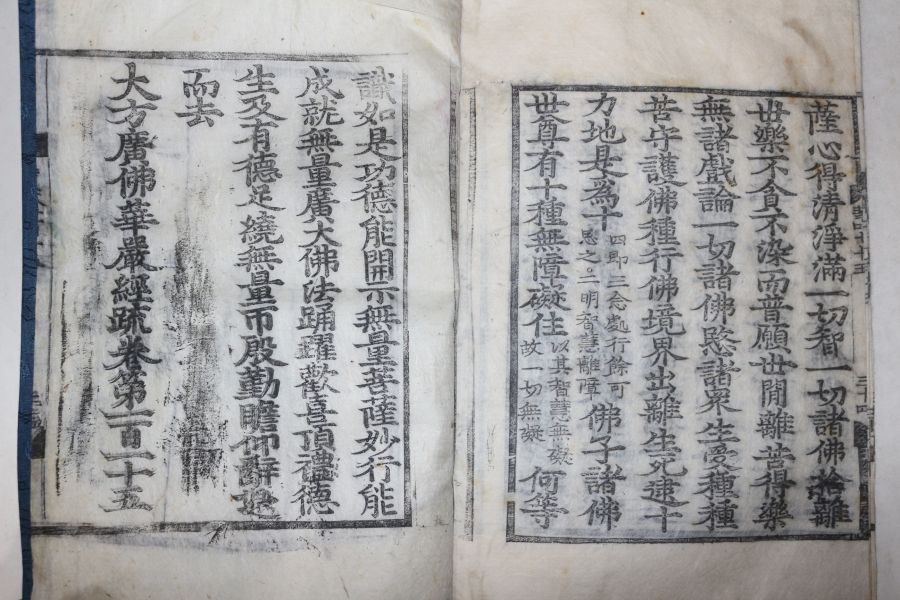 薩心得清淨滿一切智一切諸佛捨離
世樂不貪不染而普願世間離苦得樂
無諸戲論一切諸佛愍諸眾生受種種
苦守護佛種行佛境界出離生死逮十
力地是為十
四即三念處行餘可
思之五明智慧離障
佛子諸佛
世尊有十種無障礙住
以其智慧無礙
故一切無礙
何等
識如是功德能開示無量菩薩妙行能
成就無量廣大佛法踊躍歡喜頂禮德
生及有德足繞無量帀殷勤瞻仰辭退
而去
大方廣佛華嚴經疏卷第一百一十五